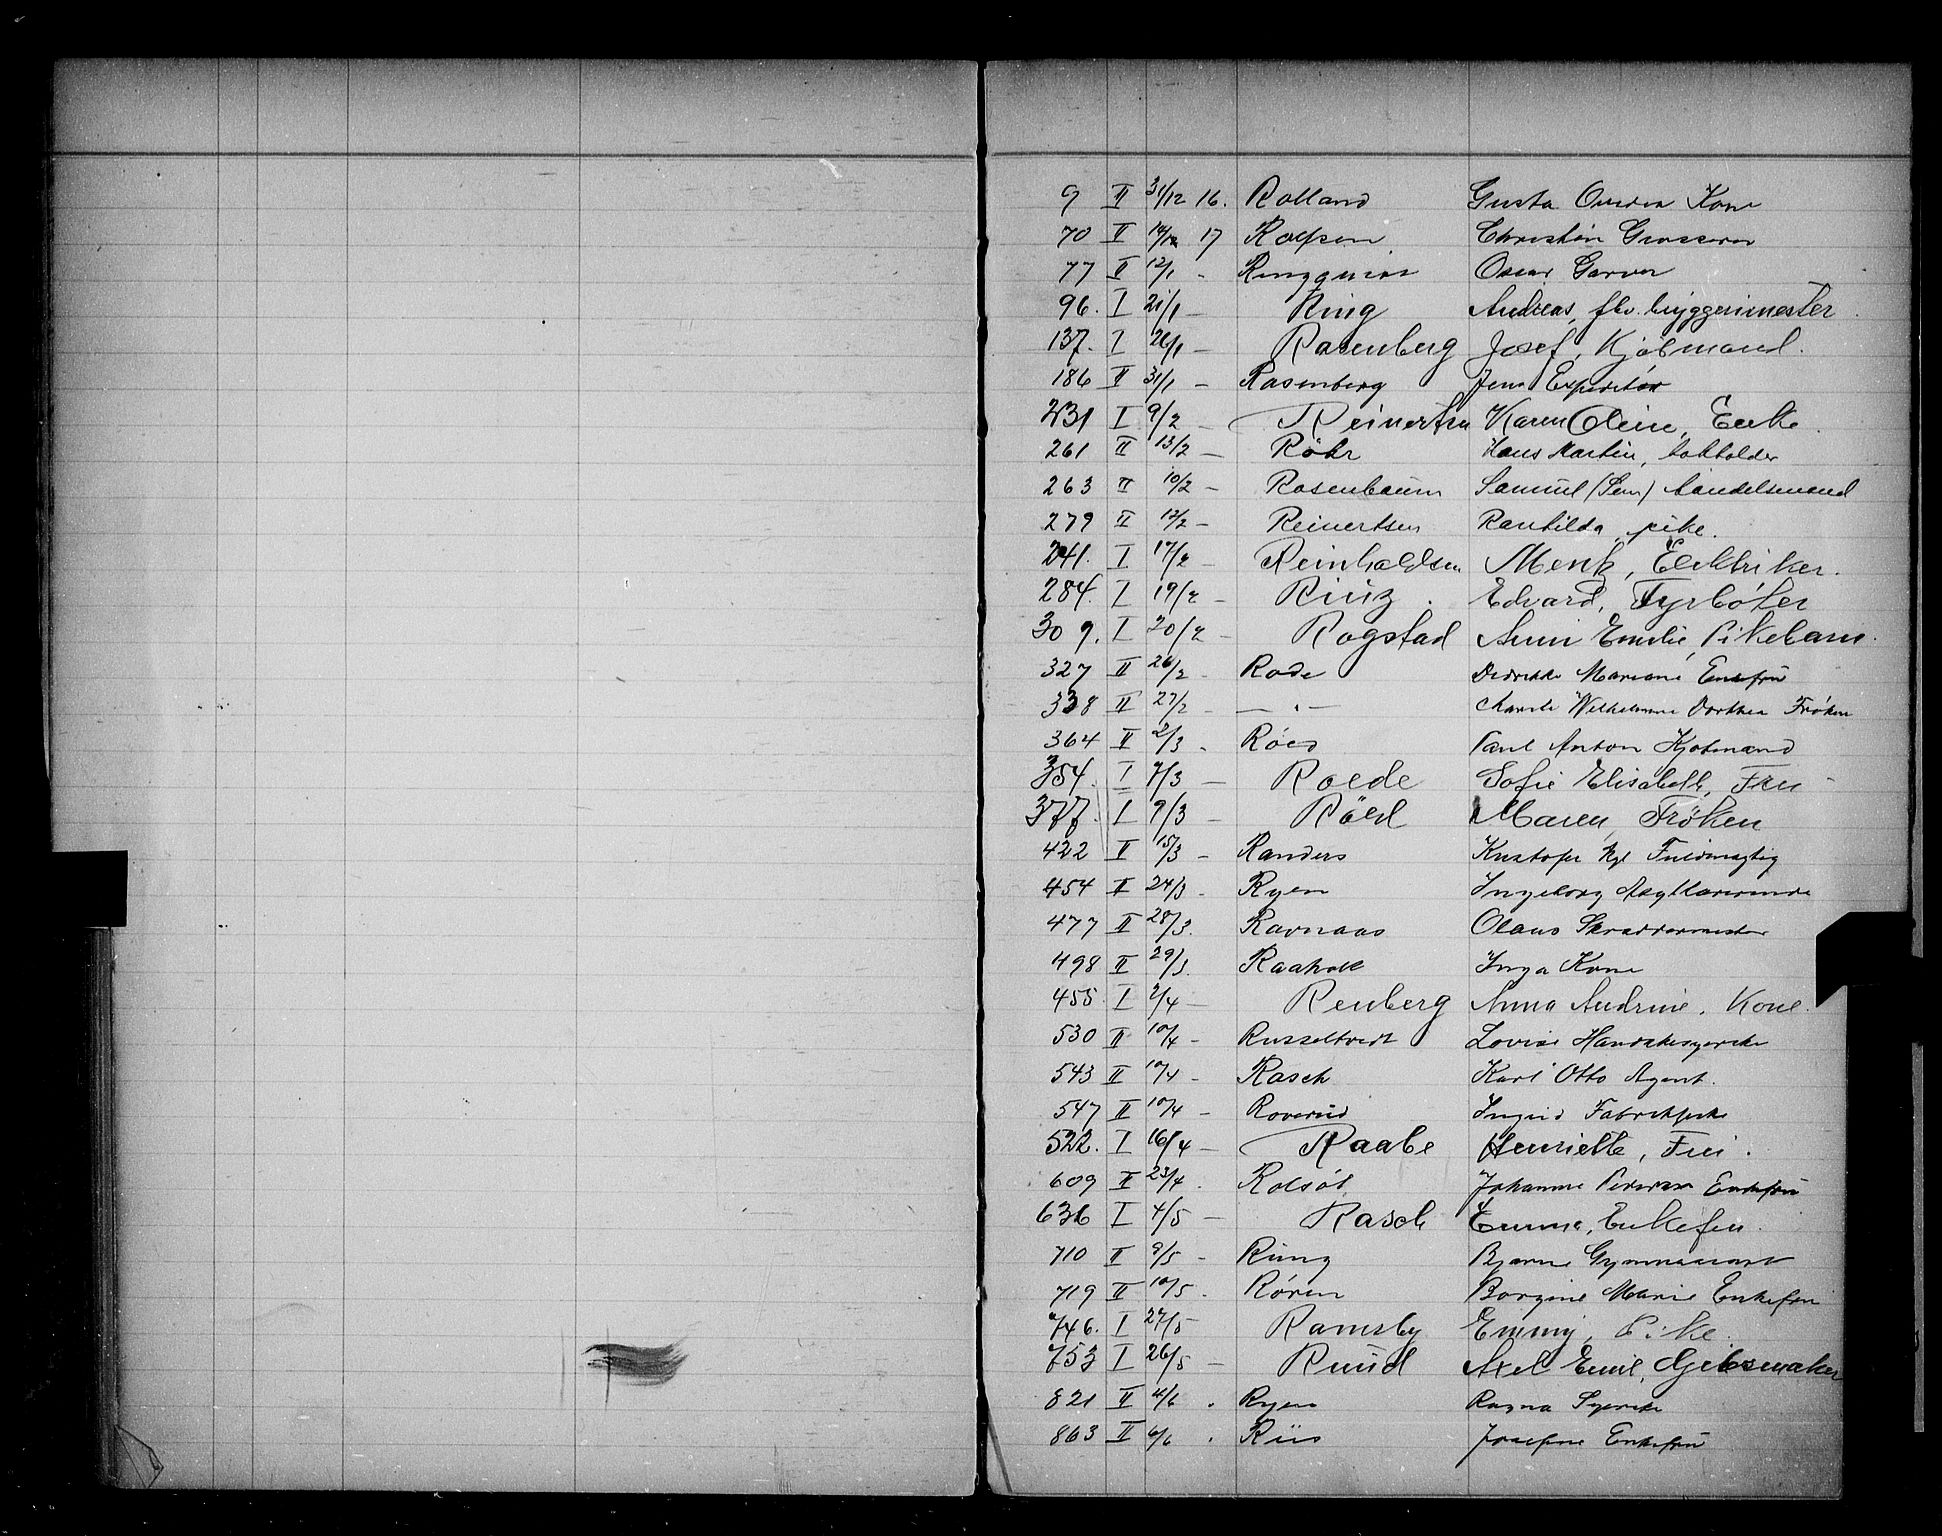 9 II 31/12 16. Rolland Gusta Kone
70 II 17 Rolfsen Christian Grosserer
77 II 12/1 - Ringquist Oscar Garver
96. I 21/1 - Ring Andreas, fhv. bryggerimester
137. I 26/1 - Rosenberg Josef, Kjøbmand.
186 II 31/1 - Rosenberg Jens Expeditør
231 I 9/2 - Reinertsen Karen Oline, Enke.
261 II 13/2 - Röhr Hans Martin, bokholder
263 II 10/2 - Rosenbaum Samuel (Sem) handelsmand
279 II 12/2 - Reinertsen Rantilda, pike.
241. I 17/2 - Reinholdsen Menk, Elektriker.
284. I 19/2 - Ring. Edvard, Fyrbøter
309. I 20/2 - Rogstad Anni Emilie, Pikebarn.
327 II 26/2 - Rode Didrikke Mariane Enkefru
338 II 27/2 - — " — Wilhelmine Dorthea Frøken
364 II 2/3 - Röed Paul Anton Kjøbmand
354. I 7/3 - Roede Sofie Elisabeth, Fru
377. I 9/3 - Röed Maren, Frøken
422 II 15/3 - Randers Kristofer Kgl Fuldmægtig
454 II 24/3 - Ryen Ingeborg
477 II 28/3. Ravnaas Olaus Skræddermester
498 II 29/3. Raaholt Inga Kone
455. I 2/4 - Renberg Anna Andrine, Kone.
530 II 10/4 - Russeltvedt Lovise Handskesyerske
543 II 10/4 - Rasch Karl Otto Agent.
547 II 10/4 - Roverud Ingrid Fabrikpike
522. I 16/4 - Raabe Henriette, Frei.
609 II 23/4 . Rolsøt Johanne Pedersen Enkefru
636 I 4/5 - Rasch Emma, Enkefru.
710 II 9/5 - Ring Bjarne Gymnasiast
719 II 10/5. Røren Borgine Marie Enkefru
746. I 27/5 Ramsby Emmy, Pike.
753 I 26/5 - Ruud Axel Emil, Gibsmaker
821 II 4/6 . Ryen Ragna Syerske
863 II 6/6 . Riis Josefine Enkefru